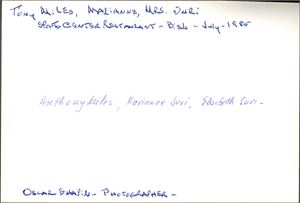 Tony Miles, Marianne, Mrs. Juri
Center Restaurant - Biel - July - 1985
Anthony Miles, Marianne Juri, Elisabeth Juri -
Oscar - Photographer -